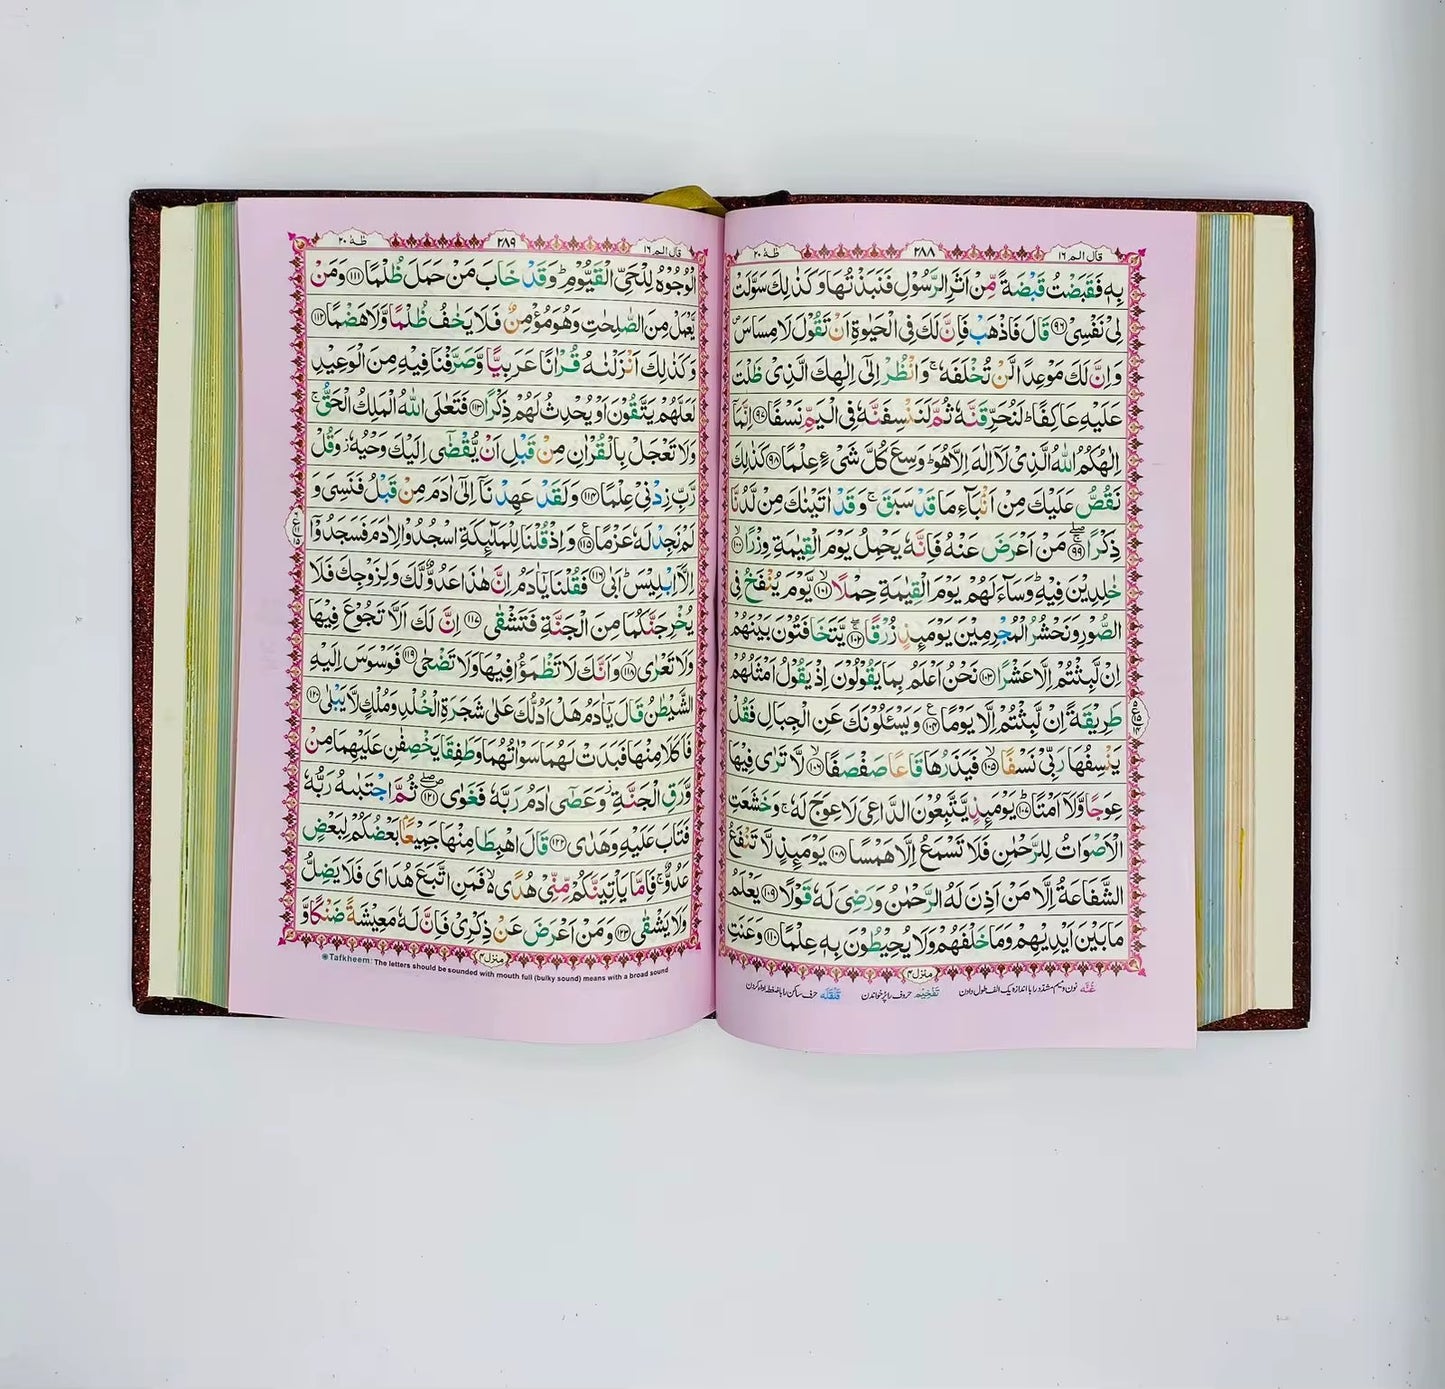 قال الم ۱۶
۲۸۸
طٰهٰ ۲۰
بِهٖ فَقَبَضْتُ قَبْضَةً مِّنْ اَثَرِ الرَّسُوْلِ فَنَبَذْتُهَا وَكَذٰلِكَ سَوَّلَتْ
لِیْ نَفْسِیْ ﴿۹۶﴾ قَالَ فَاذْهَبْ فَاِنَّ لَكَ فِی الْحَیٰوةِ اَنْ تَقُوْلَ لَا مِسَاسَ ۪
وَ اِنَّ لَكَ مَوْعِدًا لَّنْ تُخْلَفَهٗ ۚ وَانْظُرْ اِلٰۤی اِلٰهِكَ الَّذِیْ ظَلْتَ
عَلَیْهِ عَاكِفًا ؕ لَنُحَرِّقَنَّهٗ ثُمَّ لَنَنْسِفَنَّهٗ فِی الْیَمِّ نَسْفًا ﴿۹۷﴾ اِنَّمَاۤ
اِلٰهُكُمُ اللّٰهُ الَّذِیْ لَاۤ اِلٰهَ اِلَّا هُوَ ؕ وَسِعَ كُلَّ شَیْءٍ عِلْمًا ﴿۹۸﴾ كَذٰلِكَ
نَقُصُّ عَلَیْكَ مِنْ اَنْۢبَآءِ مَا قَدْ سَبَقَ ۚ وَقَدْ اٰتَیْنٰكَ مِنْ لَّدُنَّا
ذِكْرًا ﴿۹۹﴾ مَنْ اَعْرَضَ عَنْهُ فَاِنَّهٗ یَحْمِلُ یَوْمَ الْقِیٰمَةِ وِزْرًا ﴿۱۰۰﴾
خٰلِدِیْنَ فِیْهِ ؕ وَسَآءَ لَهُمْ یَوْمَ الْقِیٰمَةِ حِمْلًا ﴿۱۰۱﴾ یَّوْمَ یُنْفَخُ فِی
الصُّوْرِ وَنَحْشُرُ الْمُجْرِمِیْنَ یَوْمَىِٕذٍ زُرْقًا ﴿۱۰۲﴾ یَّتَخَافَتُوْنَ بَیْنَهُمْ
اِنْ لَّبِثْتُمْ اِلَّا عَشْرًا ﴿۱۰۳﴾ نَحْنُ اَعْلَمُ بِمَا یَقُوْلُوْنَ اِذْ یَقُوْلُ اَمْثَلُهُمْ
طَرِیْقَةً اِنْ لَّبِثْتُمْ اِلَّا یَوْمًا ﴿۱۰۴﴾ وَیَسْـَٔلُوْنَكَ عَنِ الْجِبَالِ فَقُلْ
یَنْسِفُهَا رَبِّیْ نَسْفًا ﴿۱۰۵﴾ فَیَذَرُهَا قَاعًا صَفْصَفًا ﴿۱۰۶﴾ لَّا تَرٰی فِیْهَا
عِوَجًا وَّلَاۤ اَمْتًا ﴿۱۰۷﴾ یَوْمَىِٕذٍ یَّتَّبِعُوْنَ الدَّاعِیَ لَا عِوَجَ لَهٗ ۚ وَخَشَعَتِ
الْاَصْوَاتُ لِلرَّحْمٰنِ فَلَا تَسْمَعُ اِلَّا هَمْسًا ﴿۱۰۸﴾ یَوْمَىِٕذٍ لَّا تَنْفَعُ
الشَّفَاعَةُ اِلَّا مَنْ اَذِنَ لَهُ الرَّحْمٰنُ وَرَضِیَ لَهٗ قَوْلًا ﴿۱۰۹﴾ یَعْلَمُ
مَا بَیْنَ اَیْدِیْهِمْ وَمَا خَلْفَهُمْ وَلَا یُحِیْطُوْنَ بِهٖ عِلْمًا ﴿۱۱۰﴾ وَعَنَتِ
منزل ۴
غُنَّه نون و میم مشدد را با اندازه یک الف طول دادن تَفْخِیْم حروف را پُر خواندن قَلْقَلَه حرف ساکن را
قال الم ۱۶
۲۸۹
طٰهٰ ۲۰
الْوُجُوْهُ لِلْحَیِّ الْقَیُّوْمِ ؕ وَقَدْ خَابَ مَنْ حَمَلَ ظُلْمًا ﴿۱۱۱﴾ وَمَنْ
یَّعْمَلْ مِنَ الصّٰلِحٰتِ وَهُوَ مُؤْمِنٌ فَلَا یَخٰفُ ظُلْمًا وَّلَا هَضْمًا ﴿۱۱۲﴾
وَكَذٰلِكَ اَنْزَلْنٰهُ قُرْاٰنًا عَرَبِیًّا وَّصَرَّفْنَا فِیْهِ مِنَ الْوَعِیْدِ
لَعَلَّهُمْ یَتَّقُوْنَ اَوْ یُحْدِثُ لَهُمْ ذِكْرًا ﴿۱۱۳﴾ فَتَعٰلَی اللّٰهُ الْمَلِكُ الْحَقُّ ۚ
وَلَا تَعْجَلْ بِالْقُرْاٰنِ مِنْ قَبْلِ اَنْ یُّقْضٰۤی اِلَیْكَ وَحْیُهٗ ؗ وَقُلْ
رَّبِّ زِدْنِیْ عِلْمًا ﴿۱۱۴﴾ وَلَقَدْ عَهِدْنَاۤ اِلٰۤی اٰدَمَ مِنْ قَبْلُ فَنَسِیَ وَ
لَمْ نَجِدْ لَهٗ عَزْمًا ﴿۱۱۵﴾ وَاِذْ قُلْنَا لِلْمَلٰٓىِٕكَةِ اسْجُدُوْا لِاٰدَمَ فَسَجَدُوْۤا
اِلَّاۤ اِبْلِیْسَ ؕ اَبٰی ﴿۱۱۶﴾ فَقُلْنَا یٰۤاٰدَمُ اِنَّ هٰذَا عَدُوٌّ لَّكَ وَلِزَوْجِكَ فَلَا
یُخْرِجَنَّكُمَا مِنَ الْجَنَّةِ فَتَشْقٰی ﴿۱۱۷﴾ اِنَّ لَكَ اَلَّا تَجُوْعَ فِیْهَا
وَلَا تَعْرٰی ﴿۱۱۸﴾ وَاَنَّكَ لَا تَظْمَؤُا فِیْهَا وَلَا تَضْحٰی ﴿۱۱۹﴾ فَوَسْوَسَ اِلَیْهِ
الشَّیْطٰنُ قَالَ یٰۤاٰدَمُ هَلْ اَدُلُّكَ عَلٰی شَجَرَةِ الْخُلْدِ وَمُلْكٍ لَّا یَبْلٰی ﴿۱۲۰﴾
فَاَكَلَا مِنْهَا فَبَدَتْ لَهُمَا سَوْاٰتُهُمَا وَطَفِقَا یَخْصِفٰنِ عَلَیْهِمَا مِنْ
وَّرَقِ الْجَنَّةِ ؗ وَعَصٰۤی اٰدَمُ رَبَّهٗ فَغَوٰی ﴿۱۲۱﴾ ثُمَّ اجْتَبٰىهُ رَبُّهٗ
فَتَابَ عَلَیْهِ وَهَدٰی ﴿۱۲۲﴾ قَالَ اهْبِطَا مِنْهَا جَمِیْعًۢا بَعْضُكُمْ لِبَعْضٍ
عَدُوٌّ ۚ فَاِمَّا یَاْتِیَنَّكُمْ مِّنِّیْ هُدًی ۙ۬ فَمَنِ اتَّبَعَ هُدَایَ فَلَا یَضِلُّ
وَلَا یَشْقٰی ﴿۱۲۳﴾ وَمَنْ اَعْرَضَ عَنْ ذِكْرِیْ فَاِنَّ لَهٗ مَعِیْشَةً ضَنْكًا وَّ
منزل ۴
Tafkheem: The letters should be sounded with mouth full (bulky sound) means with a broad sound